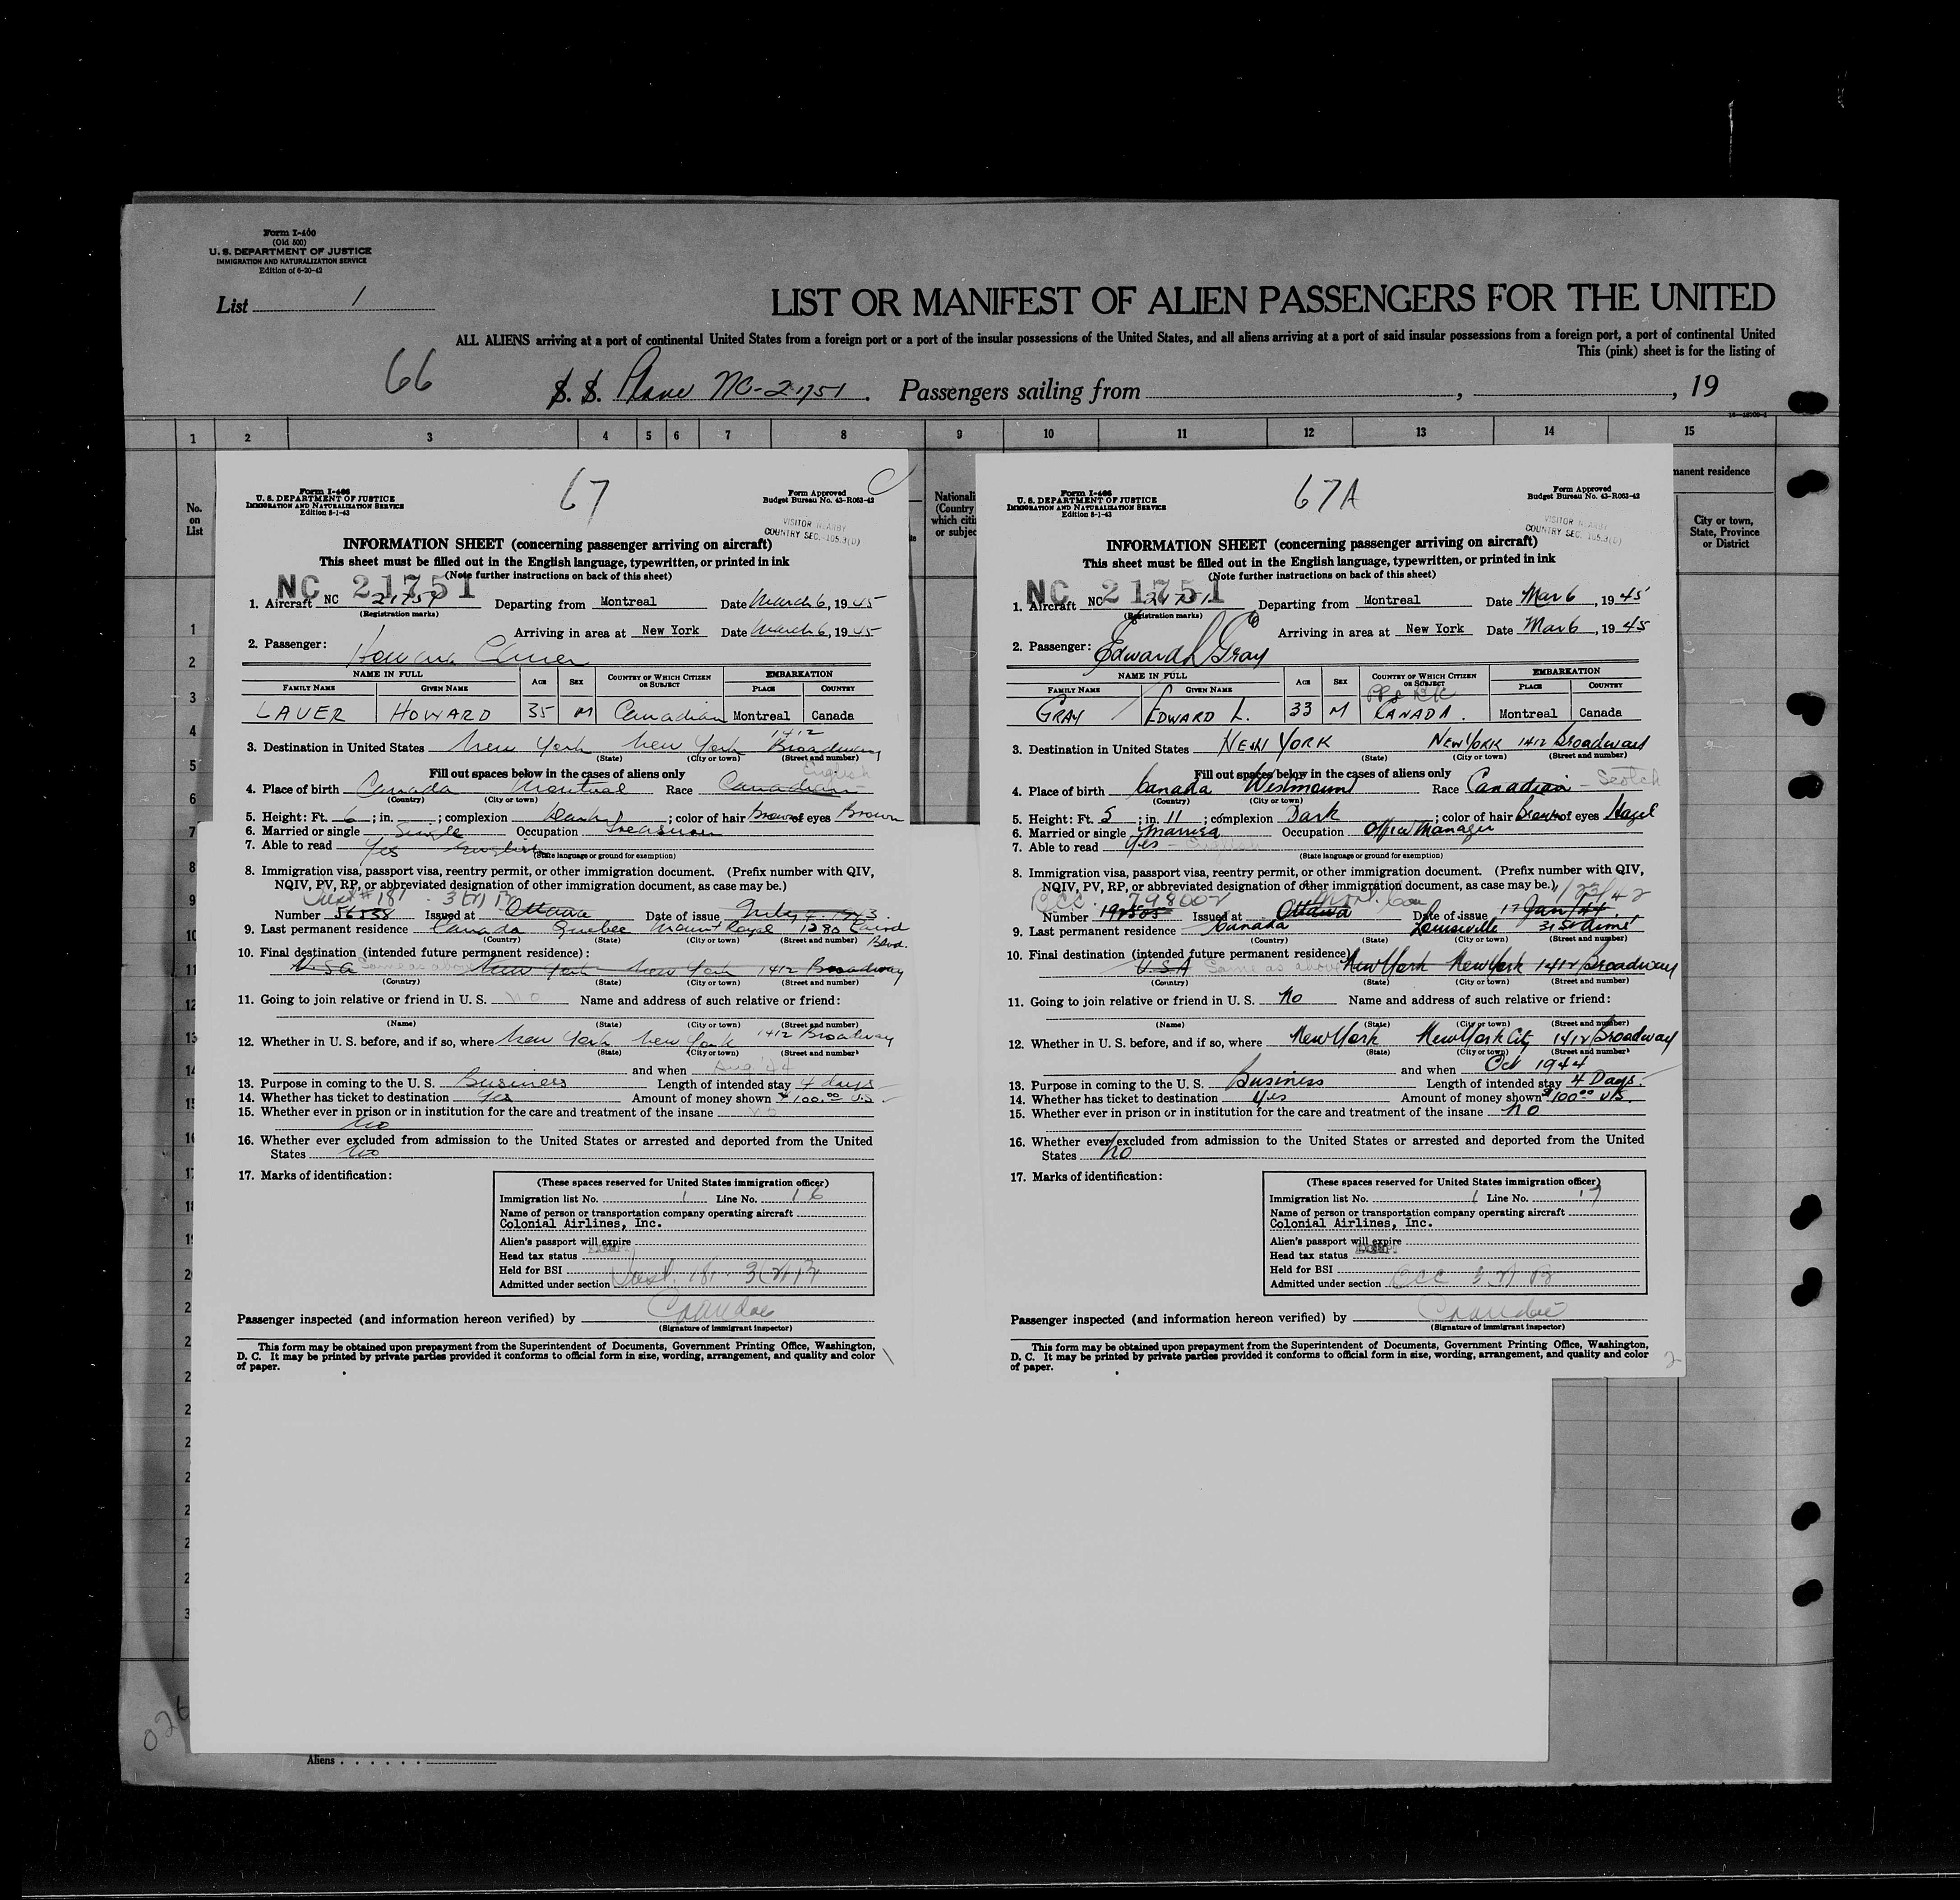 Form I-400
(Old 500)
U. S. DEPARTMENT OF JUSTICE
IMMIGRATION AND NATURALIZATION SERVICE
Edition of 6-20-42
List 1
LIST OR MANIFEST OF ALIEN PASSENGERS FOR THE UNITED
ALL ALIENS arriving at a port of continental United States from a foreign port or a port of the insular possessions of the United States, and all aliens arriving at a port of said insular possessions from a foreign port, a port of continental United
This (pink) sheet is for the listing of
66 S. S. Plane NC-21751. Passengers sailing from , , 19
1 2 3 4 5 6 7 8 9 10 11 12 13 14 15
No. on List
Nationali
(Country
which citi
or subjec
manent residence
City or town,
State, Province
or District
67
Form I-466
U. S. DEPARTMENT OF JUSTICE
IMMIGRATION AND NATURALIZATION SERVICE
Edition 8-1-43
Form Approved
Budget Bureau No. 43-R063-42
VISITOR NEARBY
COUNTRY SEC. 105.3(0)
INFORMATION SHEET (concerning passenger arriving on aircraft)
This sheet must be filled out in the English language, typewritten, or printed in ink
(Note further instructions on back of this sheet)
NC 21751
1. Aircraft NC 21751 Departing from Montreal Date March 6, 1945
(Registration marks)
Arriving in area at New York Date March 6, 1945
2. Passenger: Howard Lauer
NAME IN FULL AGE SEX COUNTRY OF WHICH CITIZEN OR SUBJECT EMBARKATION
FAMILY NAME GIVEN NAME PLACE COUNTRY
LAUER HOWARD 35 M Canadian Montreal Canada
3. Destination in United States New York New York 1412 Broadway
(State) (City or town) (Street and number)
Fill out spaces below in the cases of aliens only
English
4. Place of birth Canada Montreal Race Canadian
(Country) (City or town)
5. Height: Ft. 6; in. ; complexion Dark; color of hair Brown of eyes Brown
6. Married or single Single Occupation Treasurer
7. Able to read Yes English
(State language or ground for exemption)
8. Immigration visa, passport visa, reentry permit, or other immigration document. (Prefix number with QIV,
NQIV, PV, RP, or abbreviated designation of other immigration document, as case may be.)
181
Number 56538 Issued at Ottawa Date of issue July 4. 1943.
9. Last permanent residence Canada Quebec Mount Royal 1280 Laird Blvd.
(Country) (State) (City or town) (Street and number)
10. Final destination (intended future permanent residence):
U.S.A Same as above New York New York 1412 Broadway
(Country) (State) (City or town) (Street and number)
11. Going to join relative or friend in U. S. No Name and address of such relative or friend:
(Name) (State) (City or town) (Street and number)
12. Whether in U. S. before, and if so, where New York New York 1412 Broadway
(State) (City or town) (Street and number)
and when Aug '44
13. Purpose in coming to the U. S. Business Length of intended stay 4 days
14. Whether has ticket to destination Yes Amount of money shown $100.00 U.S.
15. Whether ever in prison or in institution for the care and treatment of the insane
No
16. Whether ever excluded from admission to the United States or arrested and deported from the United
States No
17. Marks of identification:
(These spaces reserved for United States immigration officer)
Immigration list No. 1 Line No. 16
Name of person or transportation company operating aircraft
Colonial Airlines, Inc.
Alien's passport will expire
Head tax status EXEMPT
Held for BSI
Admitted under section
Passenger inspected (and information hereon verified) by
(Signature of immigrant inspector)
This form may be obtained upon prepayment from the Superintendent of Documents, Government Printing Office, Washington,
D. C. It may be printed by private parties provided it conforms to official form in size, wording, arrangement, and quality and color
of paper.
67A
Form I-466
U. S. DEPARTMENT OF JUSTICE
IMMIGRATION AND NATURALIZATION SERVICE
Edition 8-1-43
Form Approved
Budget Bureau No. 43-R063-42
VISITOR NEARBY
COUNTRY SEC. 105.3(0)
INFORMATION SHEET (concerning passenger arriving on aircraft)
This sheet must be filled out in the English language, typewritten, or printed in ink
(Note further instructions on back of this sheet)
NC 21751
1. Aircraft NC 21751 Departing from Montreal Date Mar 6, 1945
(Registration marks)
Arriving in area at New York Date Mar 6, 1945
2. Passenger: Edward L Gray
NAME IN FULL AGE SEX COUNTRY OF WHICH CITIZEN OR SUBJECT EMBARKATION
FAMILY NAME GIVEN NAME PLACE COUNTRY
GRAY EDWARD L. 33 M CANADA. Montreal Canada
3. Destination in United States NEW YORK NEW YORK 1412 Broadway
(State) (City or town) (Street and number)
Fill out spaces below in the cases of aliens only
4. Place of birth Canada Westmount Race Canadian - Scotch
(Country) (City or town)
5. Height: Ft. 5; in. 11; complexion Dark; color of hair Brown of eyes Hazel
6. Married or single Married Occupation Office Manager
7. Able to read Yes - English
(State language or ground for exemption)
8. Immigration visa, passport visa, reentry permit, or other immigration document. (Prefix number with QIV,
NQIV, PV, RP, or abbreviated designation of other immigration document, as case may be.)
BCC. 798002
Number 192505 Issued at Ottawa Date of issue 17 Jan/44.
9. Last permanent residence Canada
(Country) (State) (City or town) (Street and number)
10. Final destination (intended future permanent residence):
U.S.A Same as above New York New York 1412 Broadway
(Country) (State) (City or town) (Street and number)
11. Going to join relative or friend in U. S. No Name and address of such relative or friend:
(Name) (State) (City or town) (Street and number)
12. Whether in U. S. before, and if so, where New York New York City 1412 Broadway
(State) (City or town) (Street and number)
and when Oct 1944
13. Purpose in coming to the U. S. Business Length of intended stay 4 Days.
14. Whether has ticket to destination Yes Amount of money shown $100.00 US.
15. Whether ever in prison or in institution for the care and treatment of the insane No
16. Whether ever excluded from admission to the United States or arrested and deported from the United
States No
17. Marks of identification:
(These spaces reserved for United States immigration officer)
Immigration list No. 1 Line No. 17
Name of person or transportation company operating aircraft
Colonial Airlines, Inc.
Alien's passport will expire
Head tax status EXEMPT
Held for BSI
Admitted under section BCC
Passenger inspected (and information hereon verified) by
(Signature of immigrant inspector)
This form may be obtained upon prepayment from the Superintendent of Documents, Government Printing Office, Washington,
D. C. It may be printed by private parties provided it conforms to official form in size, wording, arrangement, and quality and color
of paper.
2
026
Aliens